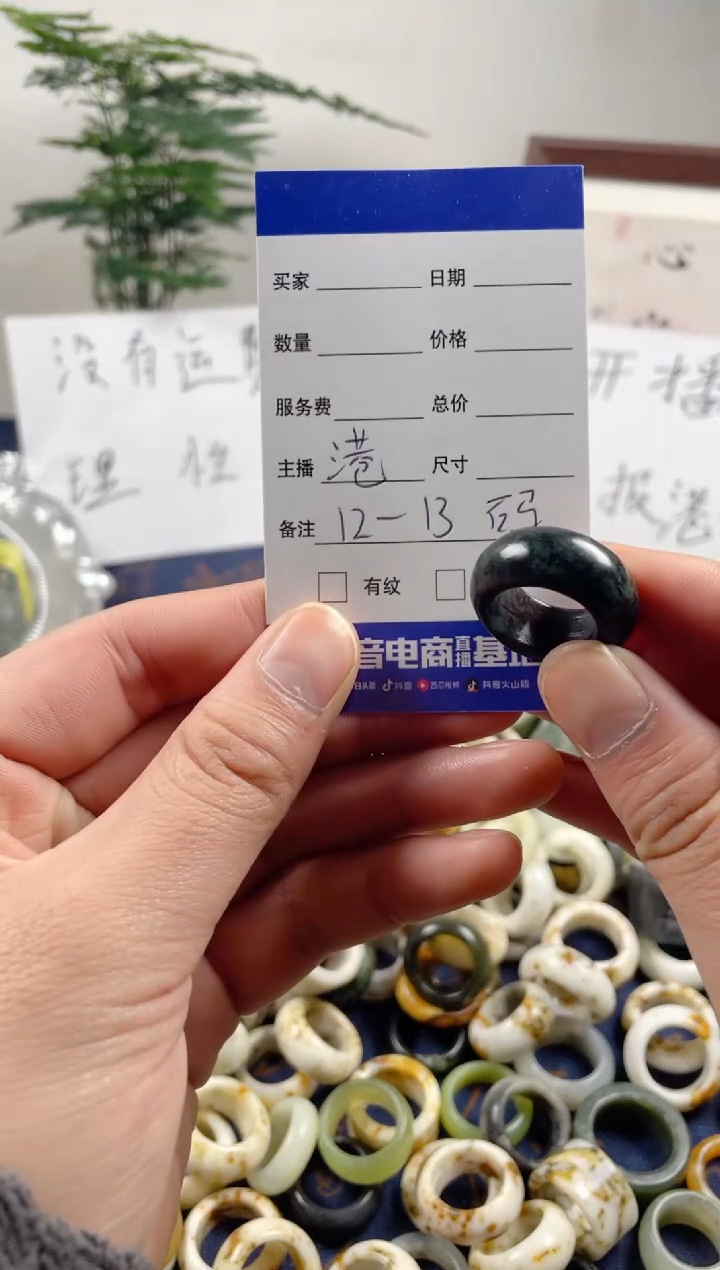 买家 日期
数量 价格
服务费 总价
主播 港 尺寸
备注 12-13 码
有纹
音电商直播基地
抖音 西瓜视频 抖音火山版
没有运费
理性
开播
报港
心